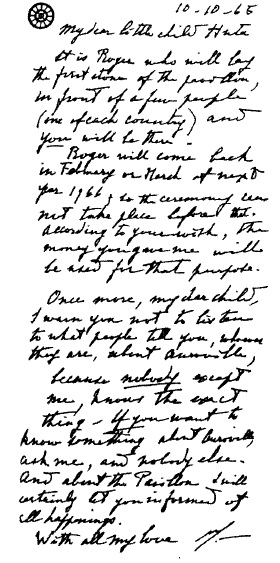 10-10-65
My dear little child Huta
It is Roger who will lay
the first stone of the pavillion,
in front of a few people
(one of each country) and
you will be there.
Roger will come back
in February or March of next
year 1966; so the ceremony can
not take place before that.
According to your wish, the
money you gave me will
be used for that purpose.
Once more, my dear child,
I warn you not to listen
to what people tell you, whoever
they are, about Auroville,
because nobody except
me, knows the exact
thing - If you want to
know something about Auroville,
ask me, and nobody else.
And about the Pavillon I will
certainly let you informed of
all happenings.
With all my love